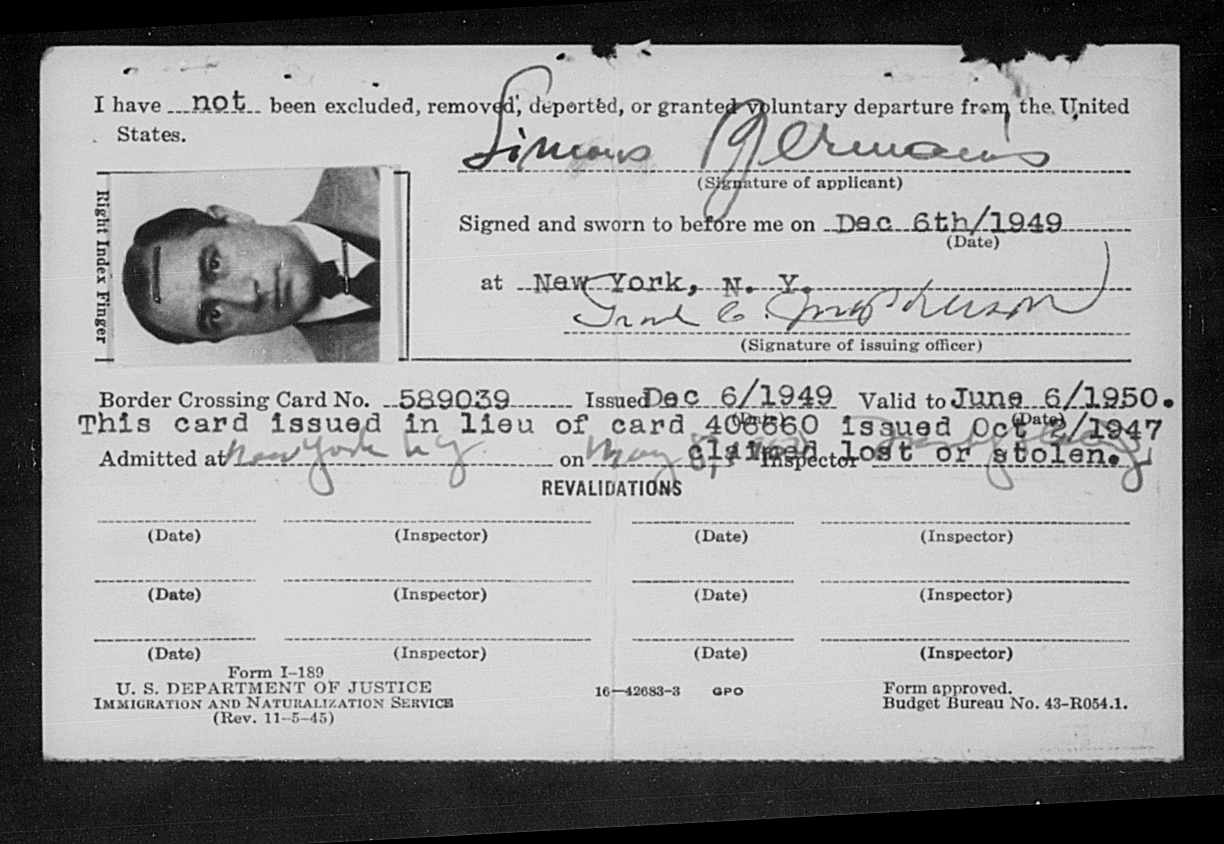 I have not been excluded, removed, deported, or granted voluntary departure from the United
States.
Simons Germanis
(Signature of applicant)
Right Index Finger
Signed and sworn to before me on Dec 6th/1949
(Date)
at New York, N. Y.
(Signature of issuing officer)
Border Crossing Card No. 589039 Issued Dec 6/1949 Valid to June 6/1950.
(Date) (Date)
This card issued in lieu of card 406660 issued Oct 2/1947
claimed lost or stolen.
Admitted at New York NY on May Inspector
REVALIDATIONS
(Date) (Inspector) (Date) (Inspector)
(Date) (Inspector) (Date) (Inspector)
(Date) (Inspector) (Date) (Inspector)
Form I-189
U. S. DEPARTMENT OF JUSTICE
IMMIGRATION AND NATURALIZATION SERVICE
(Rev. 11-5-45)
16—42683-3 GPO
Form approved.
Budget Bureau No. 43-R054.1.